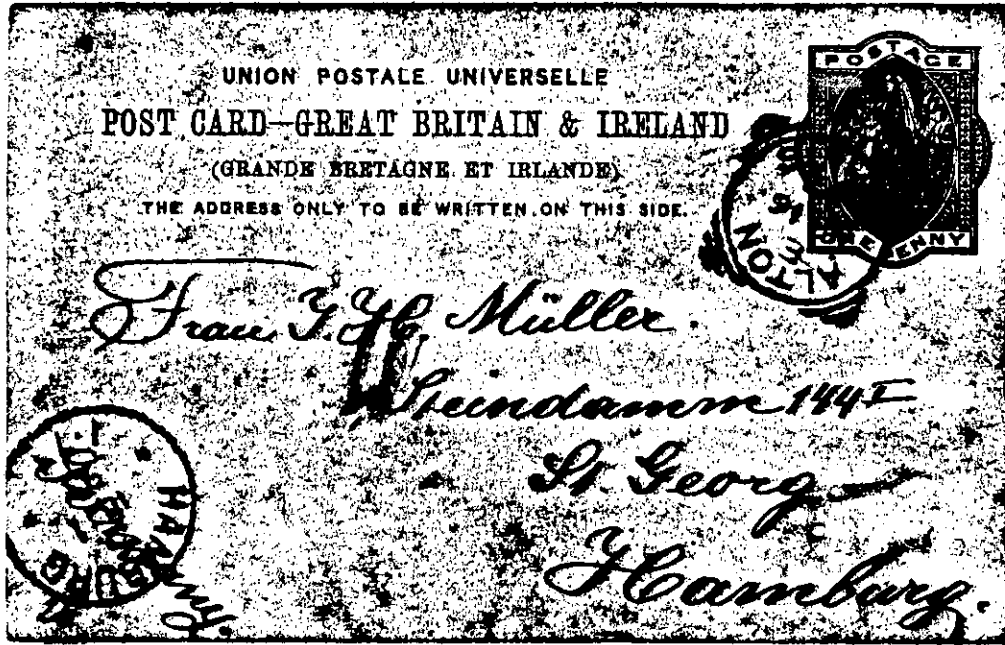 UNION POSTALE UNIVERSELLE
POST CARD—GREAT BRITAIN & IRELAND
(GRANDE BRETAGNE ET IRLANDE)
THE ADDRESS ONLY TO BE WRITTEN ON THIS SIDE.
POSTAGE
ONE PENNY
ALTON
Frau J. H. Müller.
Steindamm 144 I
St. Georg
Hamburg.
HAMBURG